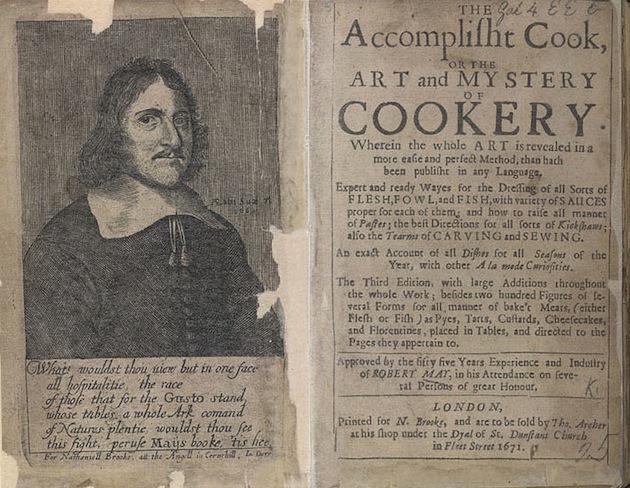 Ætatis Suæ 71
1660
What! wouldst thou view but in one face
all hospitalitie, the race
of those that for the Gusto stand,
whose tables, a whole Ark comand
of Natures plentie, wouldst thou see
this sight, peruse Mays booke, 'tis hee.
For Nathaniell Brooke, att the Angell in Cornehill,
THE
Accomplisht Cook,
OR THE
ART and MYSTERY
OF
COOKERY.
Wherein the whole ART is revealed in a
more easie and perfect Method, than hath
been publisht in any Language.
Expert and ready Wayes for the Dressing of all Sorts of
FLESH, FOWL, and FISH, with variety of SAUCES
proper for each of them; and how to raise all manner
of Pastes; the best Directions for all sorts of Kickshaws;
also the Tearms of CARVING and SEWING.
An exact Account of all Dishes for all Seasons of the
Year, with other A la mode Curiosities.
The Third Edition, with large Additions throughout
the whole Work; besides two hundred Figures of se-
veral Forms for all manner of bake't Meats, (either
Flesh or Fish) as Pyes, Tarts, Custards, Cheesecakes,
and Florentines, placed in Tables, and directed to the
Pages they appertain to.
Approved by the fifty five Years Experience and Industry
of ROBERT MAY, in his Attendance on seve-
ral Persons of great Honour.
LONDON,
Printed for N. Brooke, and are to be sold by Tho. Archer
at his shop under the Dyal of St. Dunstans Church
in Fleet Street 1671.